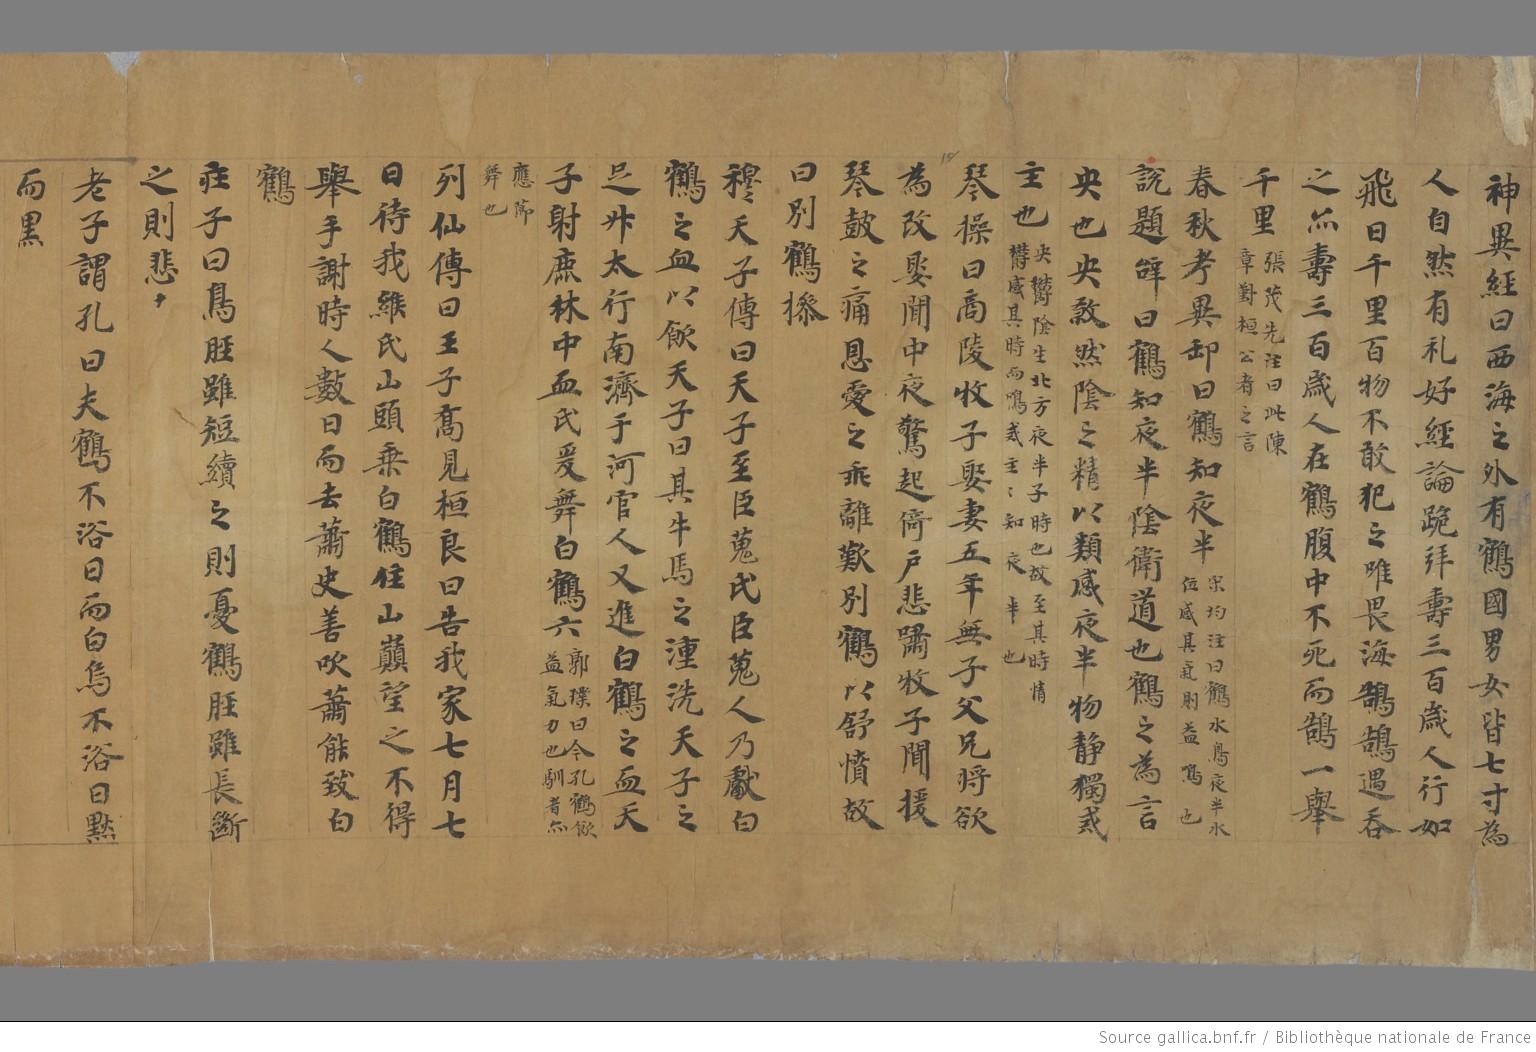 神異經曰西海之外有鶴國男女皆七寸為
人自然有礼好經論跪拜壽三百歲人行如
飛日千里百物不敢犯之唯畏海鵠鵠遇吞
之亦壽三百歲人在鶴腹中不死而鵠一舉
千里張茂先注曰此陳章對桓公者之言
春秋考異郵曰鶴知夜半宋均注曰鶴水鳥夜半水位感其氣則益鳴也
說題辭曰鶴知夜半陰衛道也鶴之為言
央也央敦然陰之精以類感夜半物靜獨或
主也央鬱陰生北方夜半子時也故至其時情鬱感其時而鳴或主〻知夜半也
琴操曰商陵牧子娶妻五年無子父兄將欲
為改娶聞中夜驚起倚戶悲嘯牧子聞援
琴鼓之痛恩愛之乖離歎別鶴以舒憤故
曰別鶴操
穆天子傳曰天子至臣蒐氏臣蒐人乃獻白
鶴之血以飲天子曰具牛馬之湩洗天子之
足升太行南濟于河官人又進白鶴之血天
子射鹿林中血氏爰舞白鶴六郭璞曰今孔鶴飲益氣力也馴者亦
應節舞也
列仙傳曰王子喬見桓良曰告我家七月七
日待我緱氏山頭乘白鶴住山巔望之不得
舉手謝時人數日而去蕭史善吹蕭能致白
鶴
莊子曰鳥脛雖短續之則憂鶴脛雖長斷
之則悲
老子謂孔曰夫鶴不浴日而白烏不浴日黑㸃
而黑